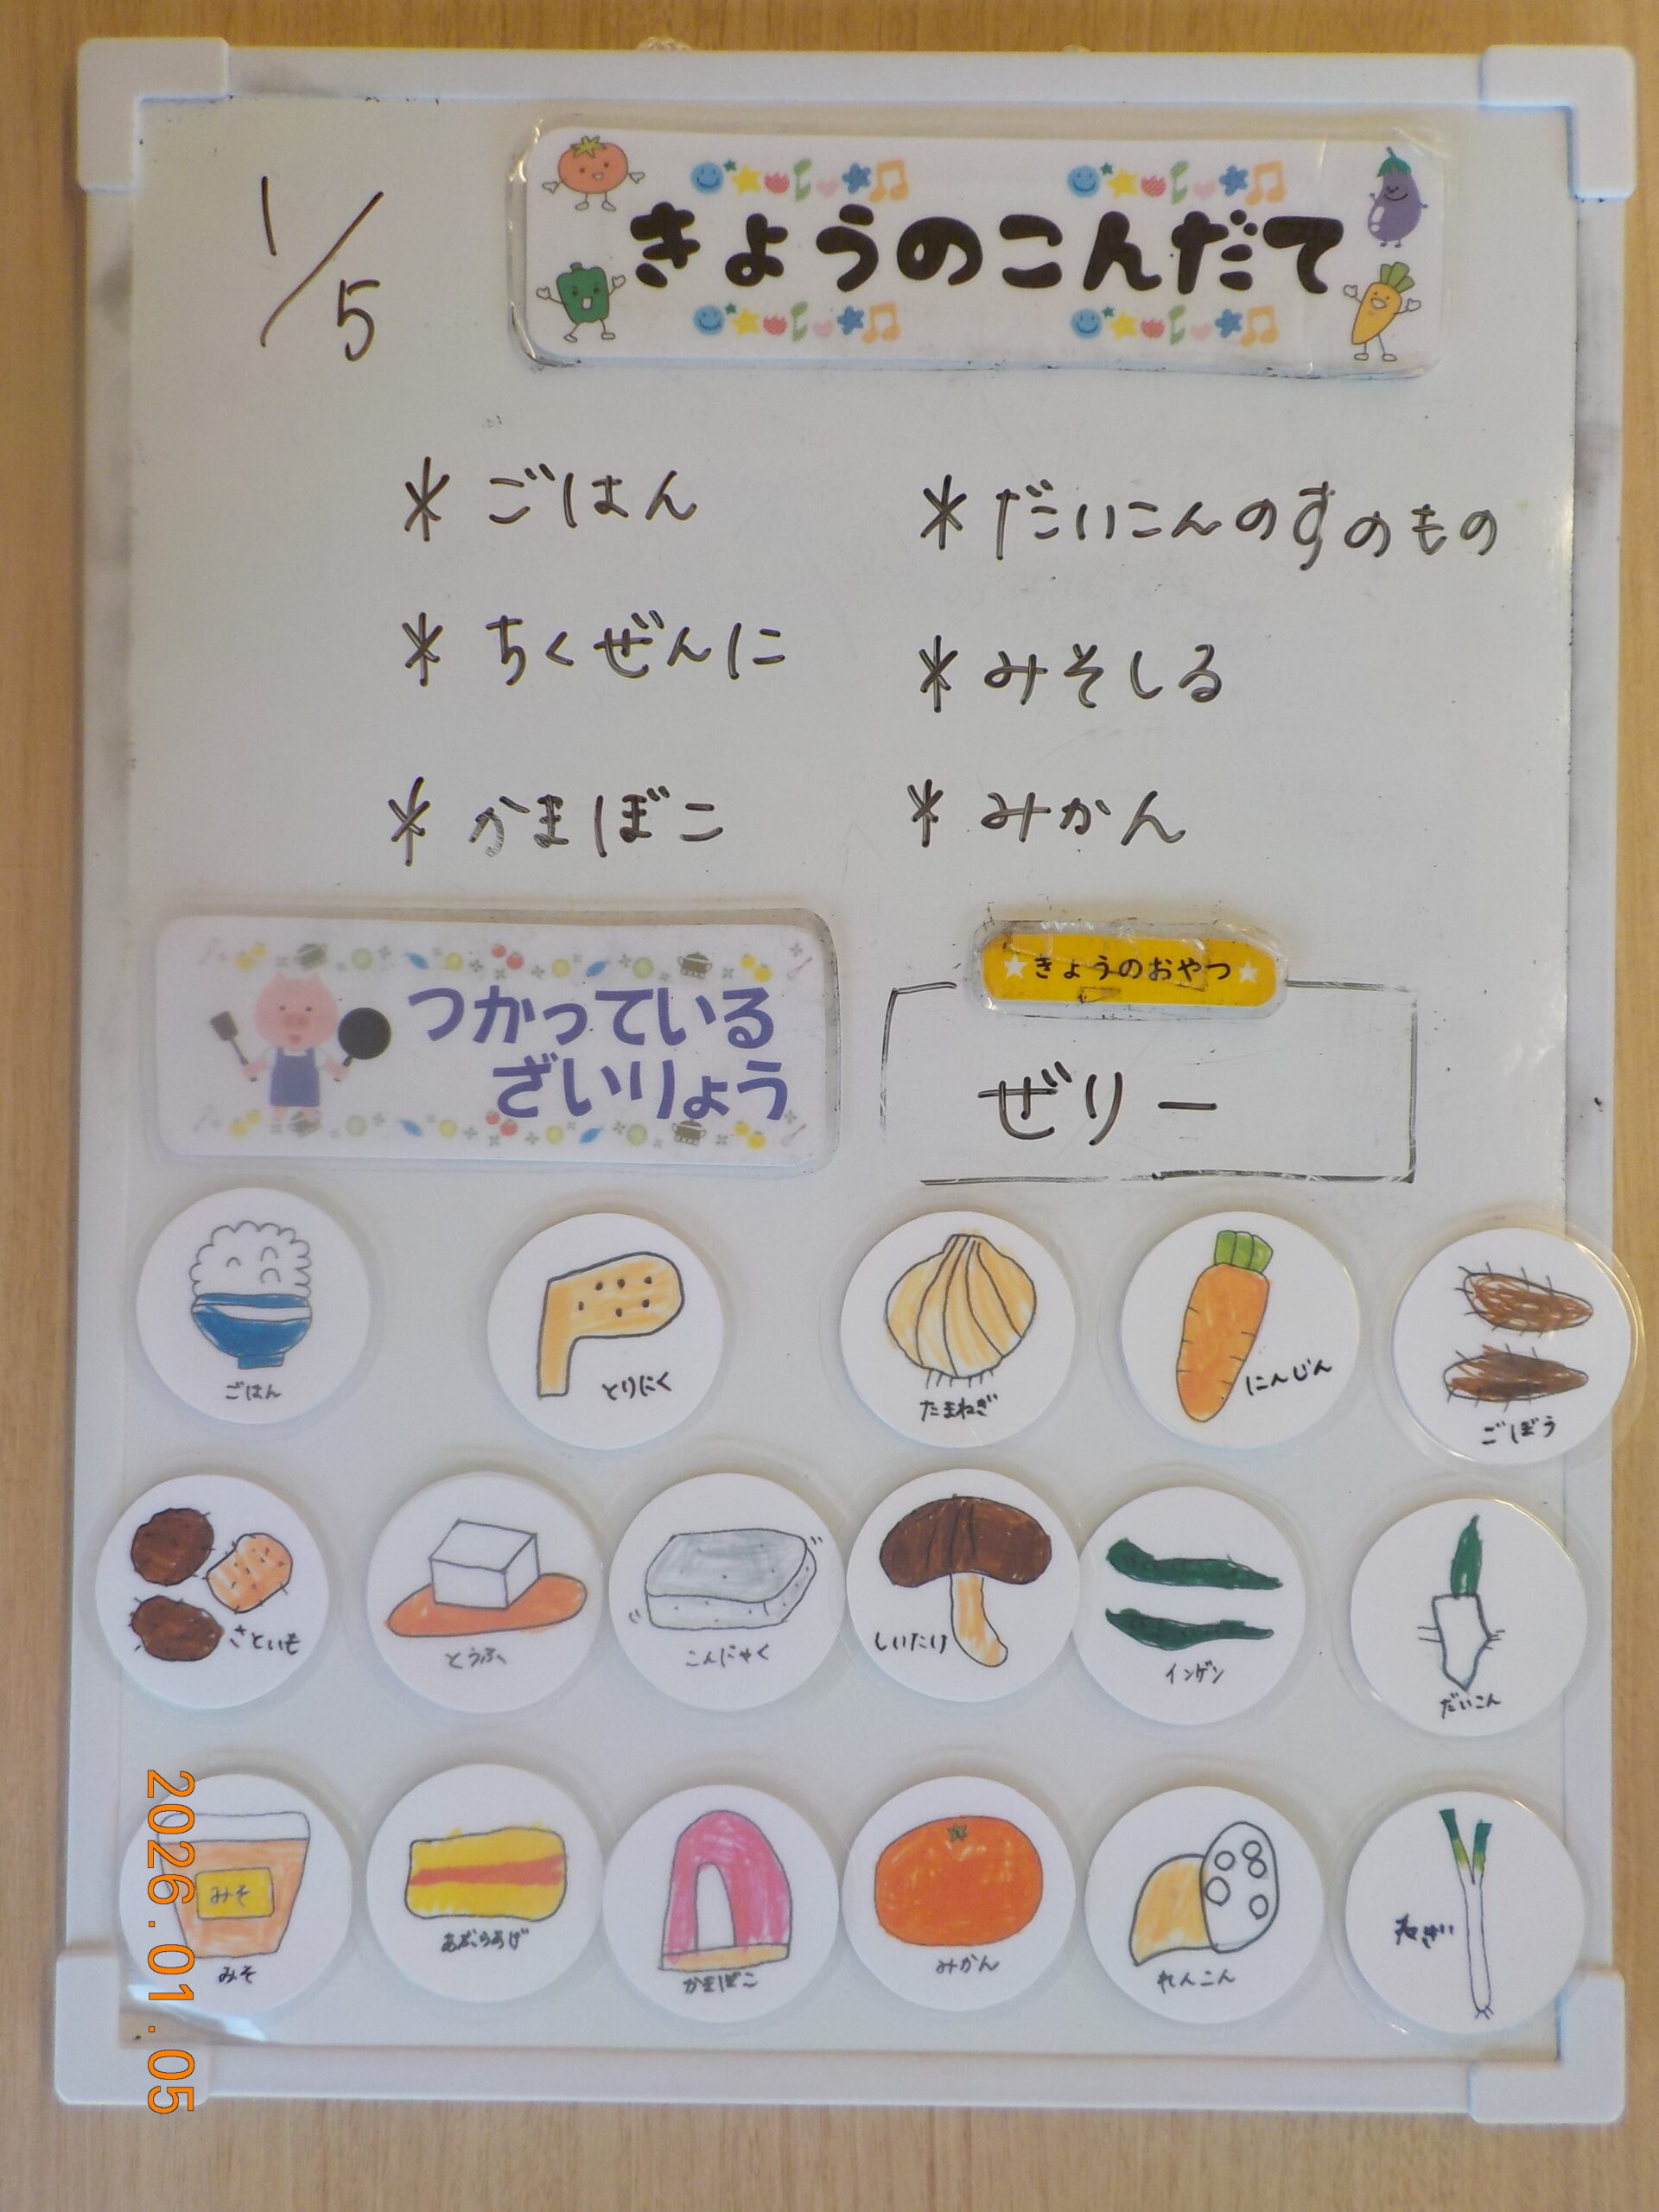 1/5
きょうのこんだて
* ごはん
* ちくぜんに
* かまぼこ
* だいこんのすのもの
* みそしる
* みかん
つかっている
ざいりょう
★きょうのおやつ★
ゼリー
ごはん
とりにく
たまねぎ
にんじん
ごぼう
さといも
とうふ
こんにゃく
しいたけ
インゲン
だいこん
みそ
みそ
あぶらあげ
かまぼこ
みかん
れんこん
ねぎ
2026.01.05